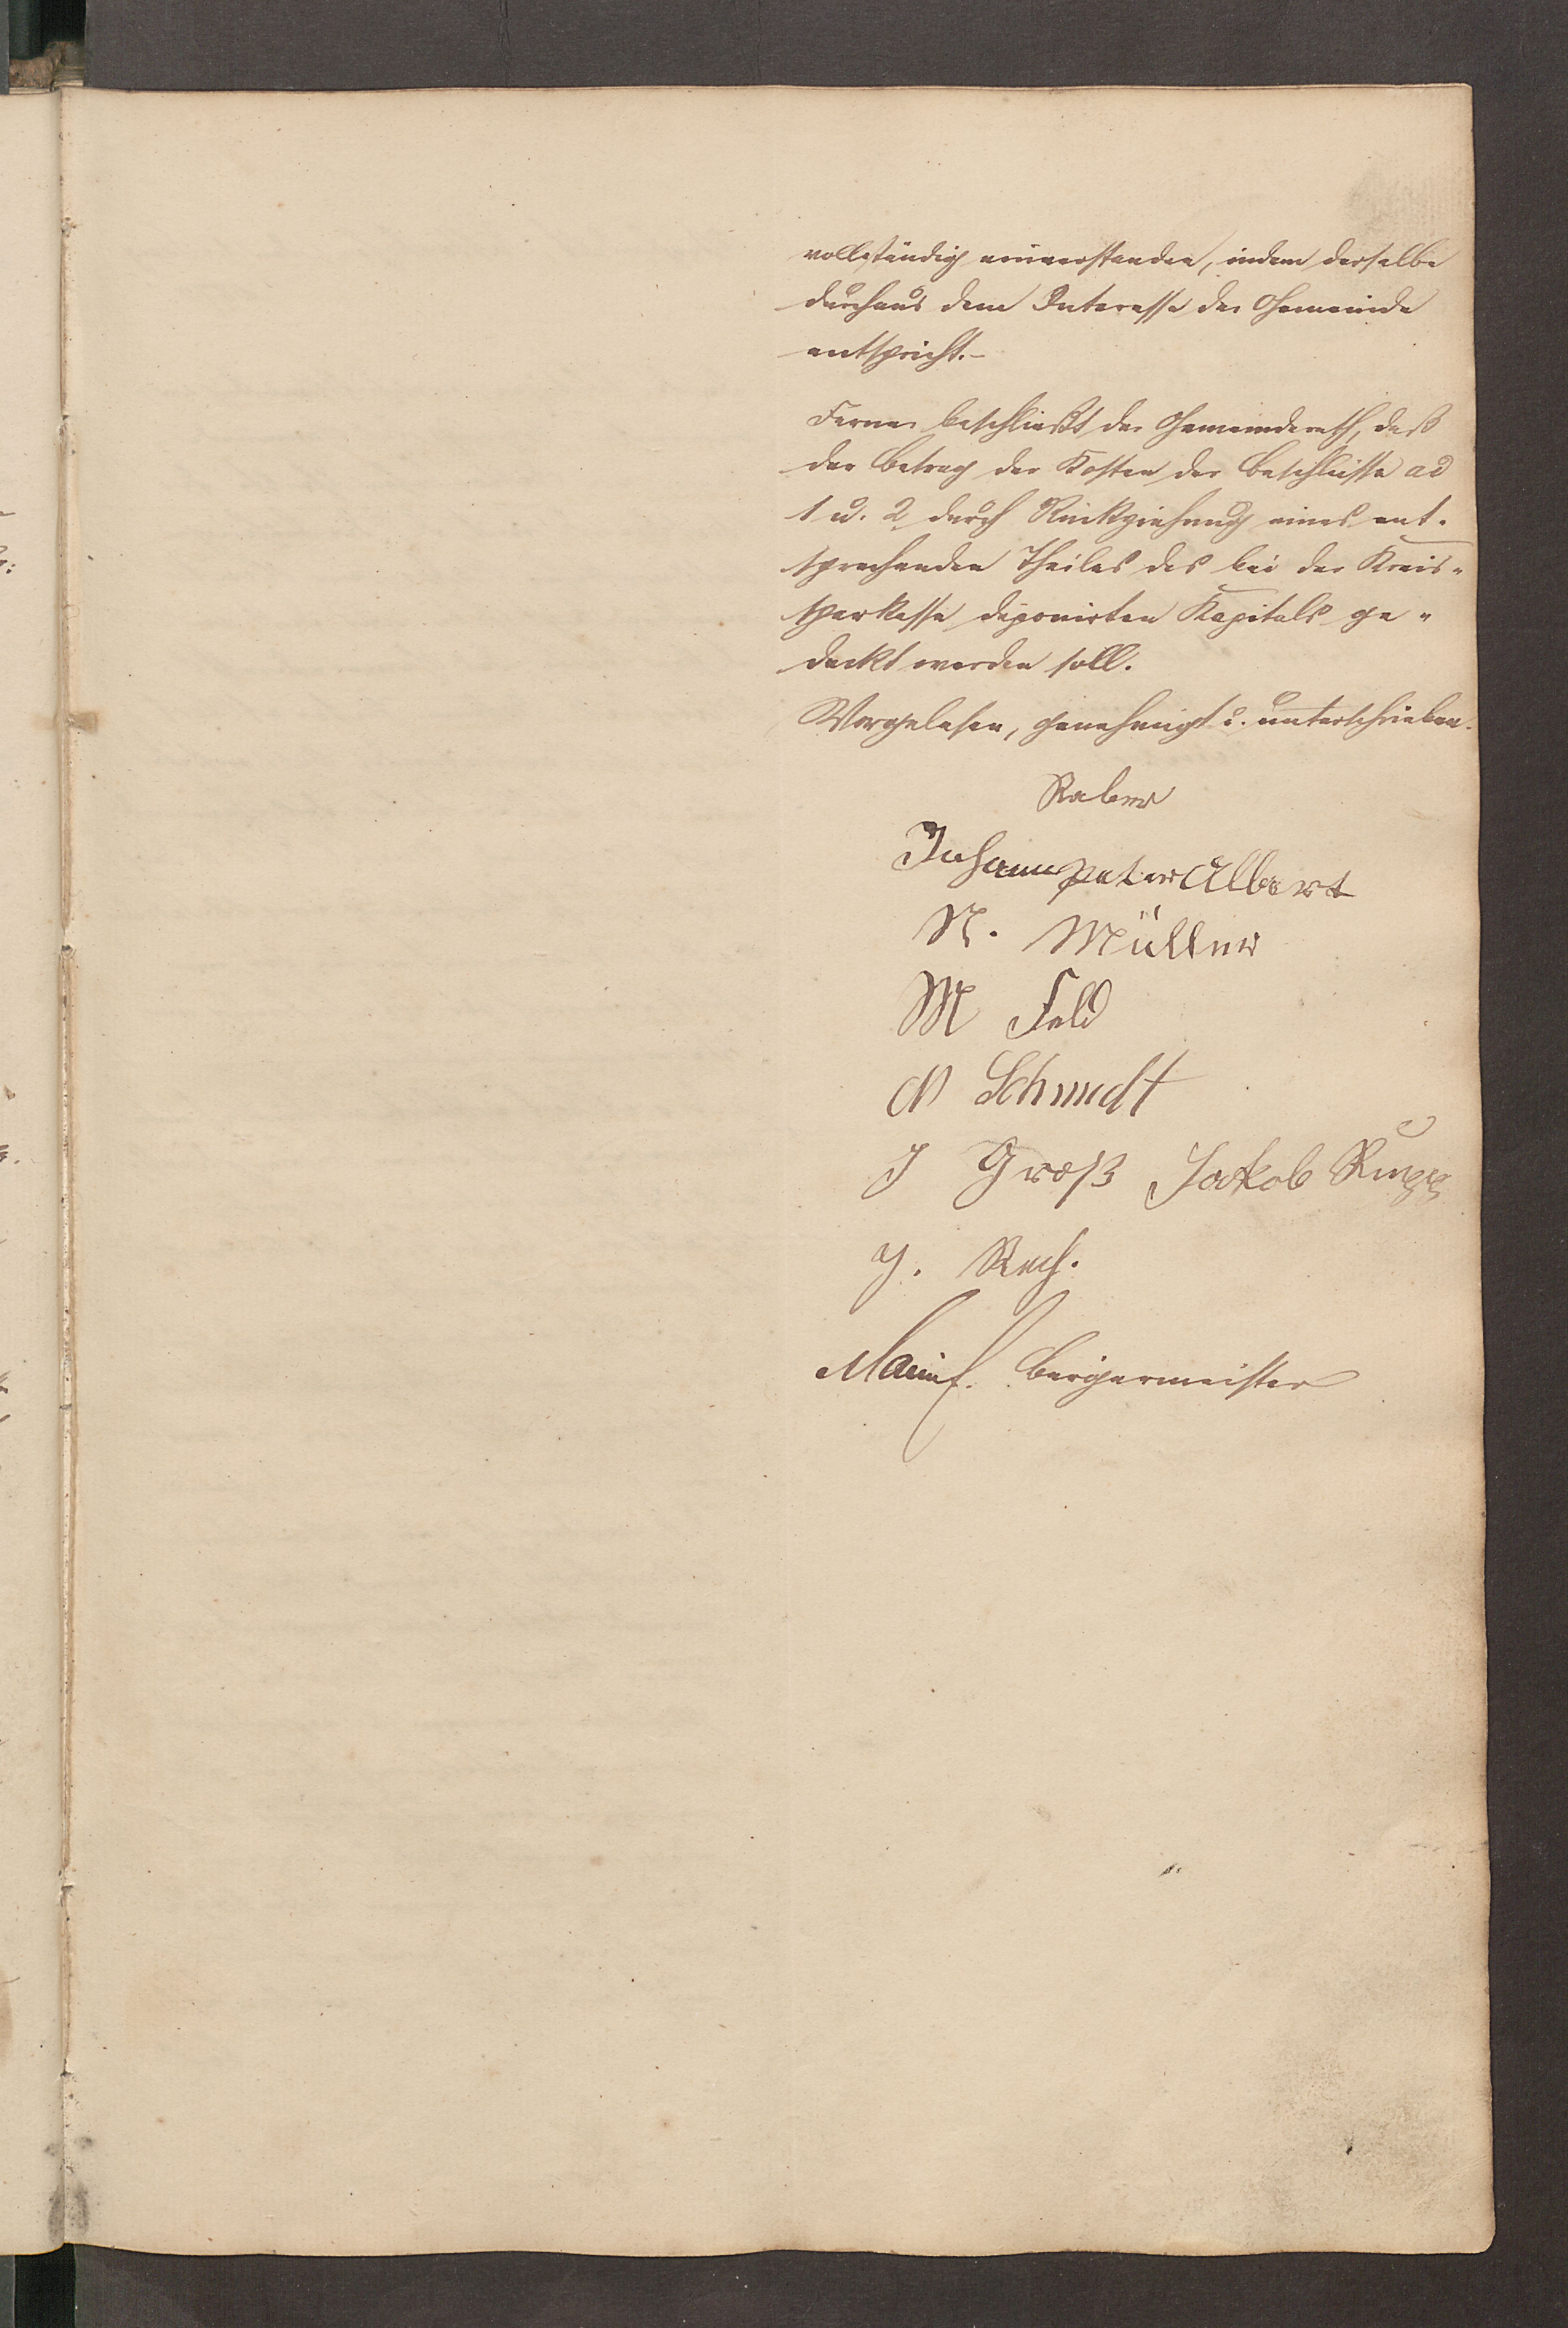 vollständig einverstanden, indem derselbe
durchaus dem Interesse der Gemeinde
entspricht.-
Ferner beschließt der Gemeinderath, daß
der Betrag der Kosten der Beschlüsse ad
1 u. 2 durch Rückziehung eines ent-
sprechenden Theiles des bei der Kreis-
sparkasse deponirten Kapitals ge-
deckt werden soll.
Vorgelesen, genehmigt u. unterschrieben.
Raber
Johann peter Albert
N. Müller
M Feld
N Schmidt
J Groß Jakob Rupp
J. Rech.
Bürgermeister